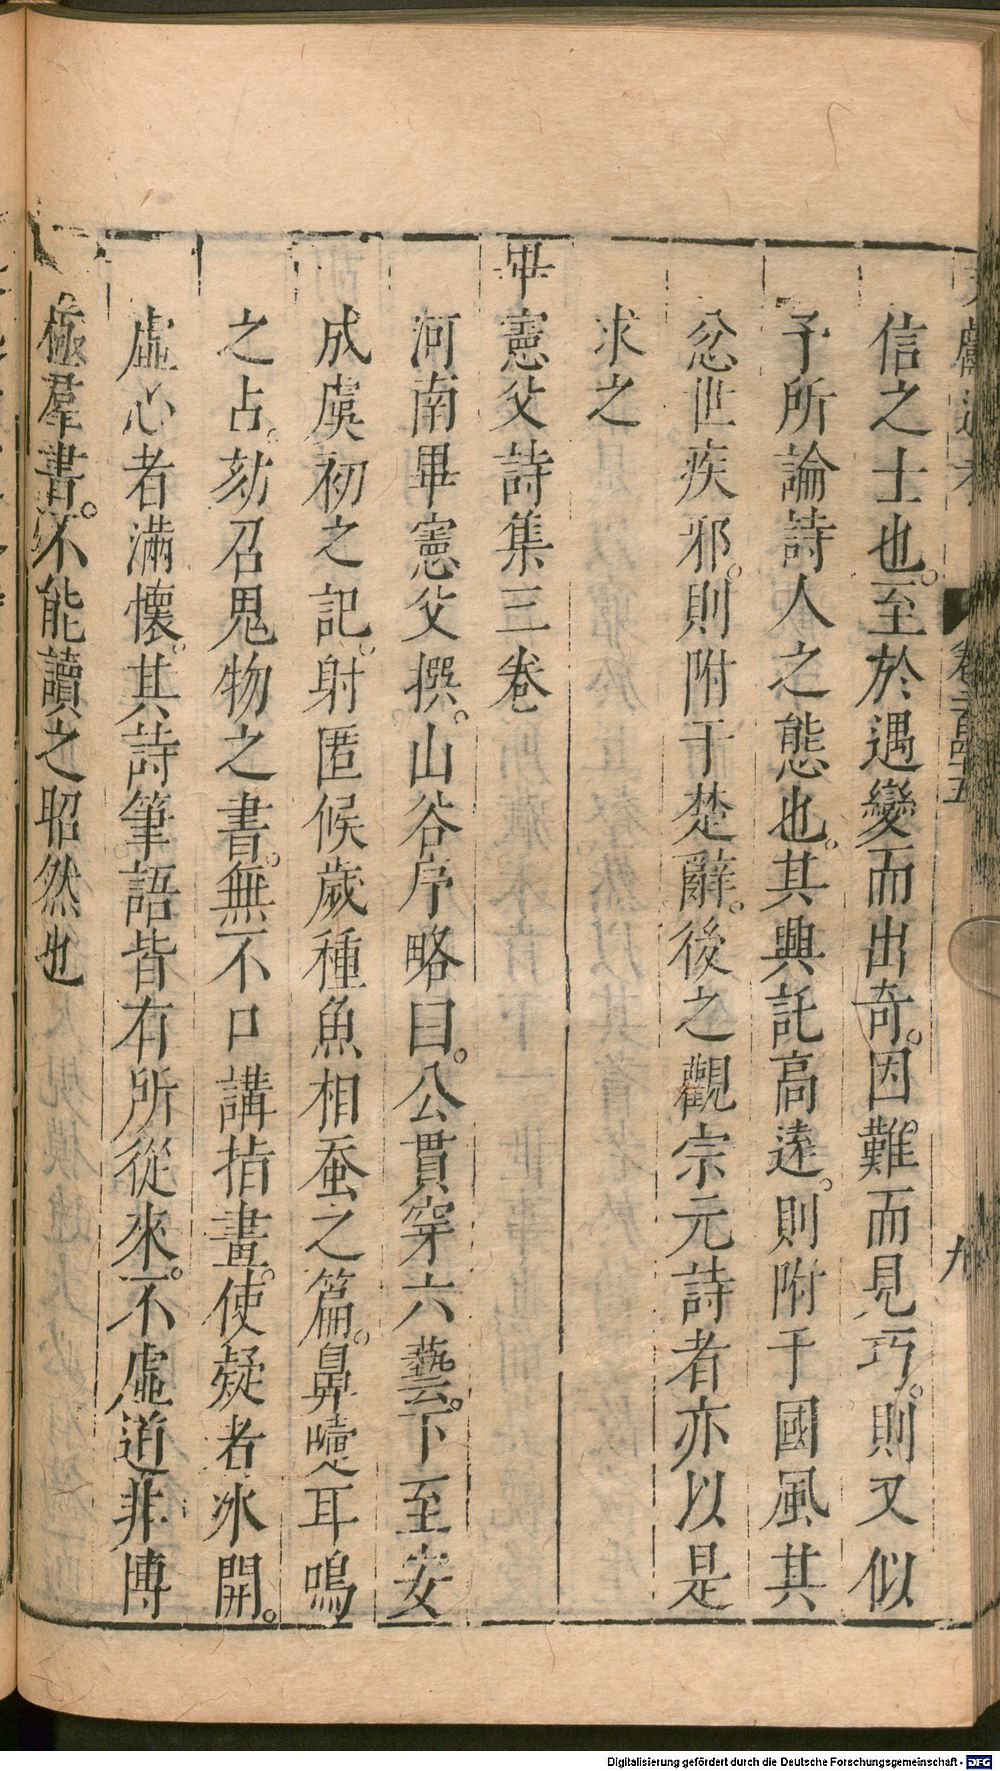 文獻通考 卷二百四五 九
信之士也至於遇變而出奇。因難而見巧。則又似
予所論詩人之態也。其興託高遠。則附于國風。其
忿世疾邪。則附于楚辭。後之觀宗元詩者亦以是
求之
畢憲父詩集三卷
河南畢憲父撰。山谷序略曰。公貫穿六藝。下至安
成虞初之記。射匿候歲種魚相蚕之篇。鼻嚏耳鳴
之占。劾召鬼物之書。無不口講指畫。使疑者冰開。
虛心者滿懷。其詩筆語皆有所從來。不虛道非博
極羣書。不能讀之昭然也
Digitalisierung gefördert durch die Deutsche Forschungsgemeinschaft - DFG